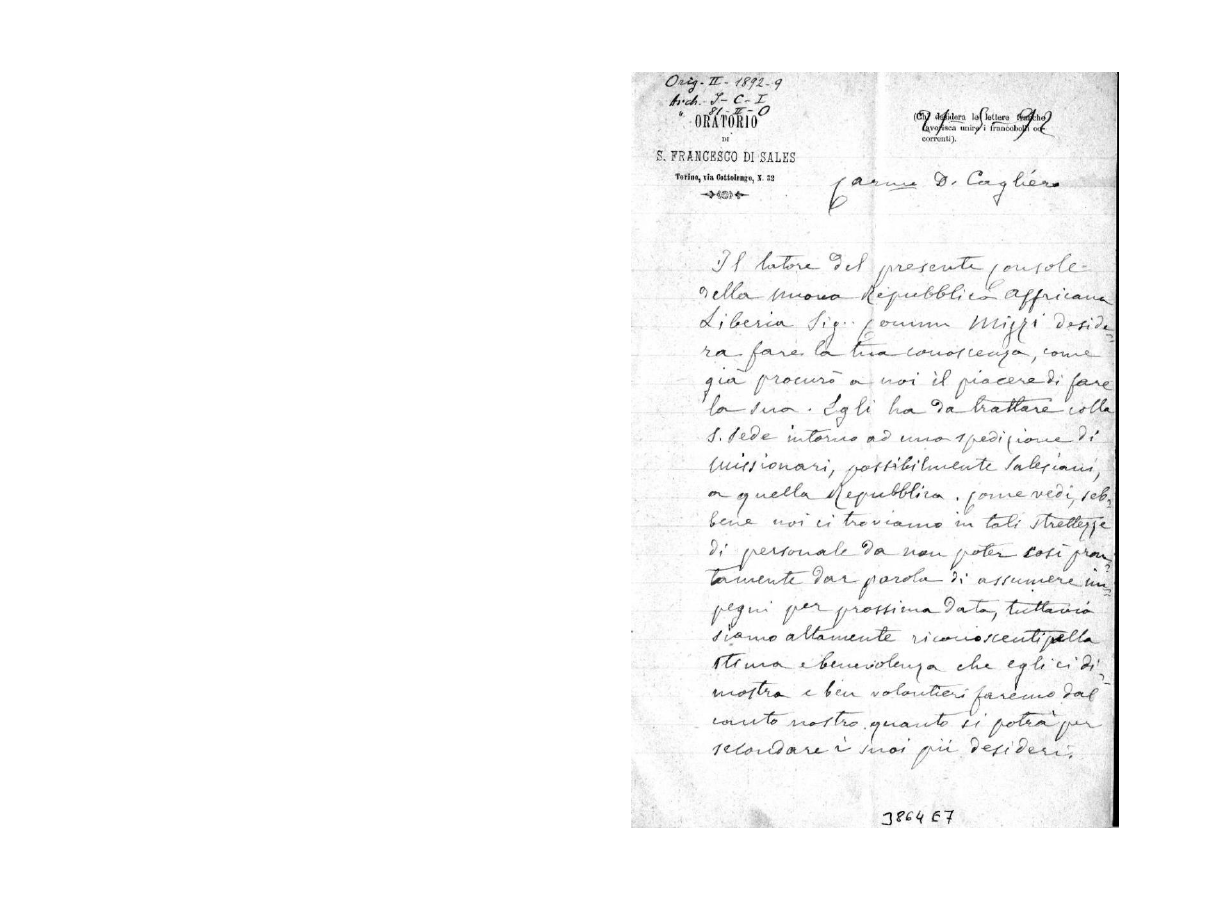 Orig - II - 1892 - 9
Arch. I - C - I
" 86 - II - O
ORATORIO
DI
S. FRANCESCO DI SALES
Torino, via Cottolengo, N. 32
(Chi desidera le lettere
favorisca unire i francobolli oc-
correnti).
21 - 5 - 92
Carmo D. Cagliero
Il latore del presente Console
della nuova Repubblica Affricana
Liberia Sig. Comm Mizzi deside-
ra fare la tua conoscenza, come
già procurò a noi il piacere di fare
la sua. Egli ha da trattare colla
S. Sede intorno ad una spedizione di
Missionari, possibilmente Salesiani,
a quella Repubblica. Come vedi, seb-
bene noi ci troviamo in tali strettezze
di personale da non poter così pron-
tamente dar parola di assumere im-
pegni per prossima data, tuttavia
siamo altamente riconoscenti pella
stima e benevolenza che egli ci di-
mostra e ben volontieri faremo dal
canto nostro quanto si potrà per
secondare i suoi pii desideri.
3864 E7